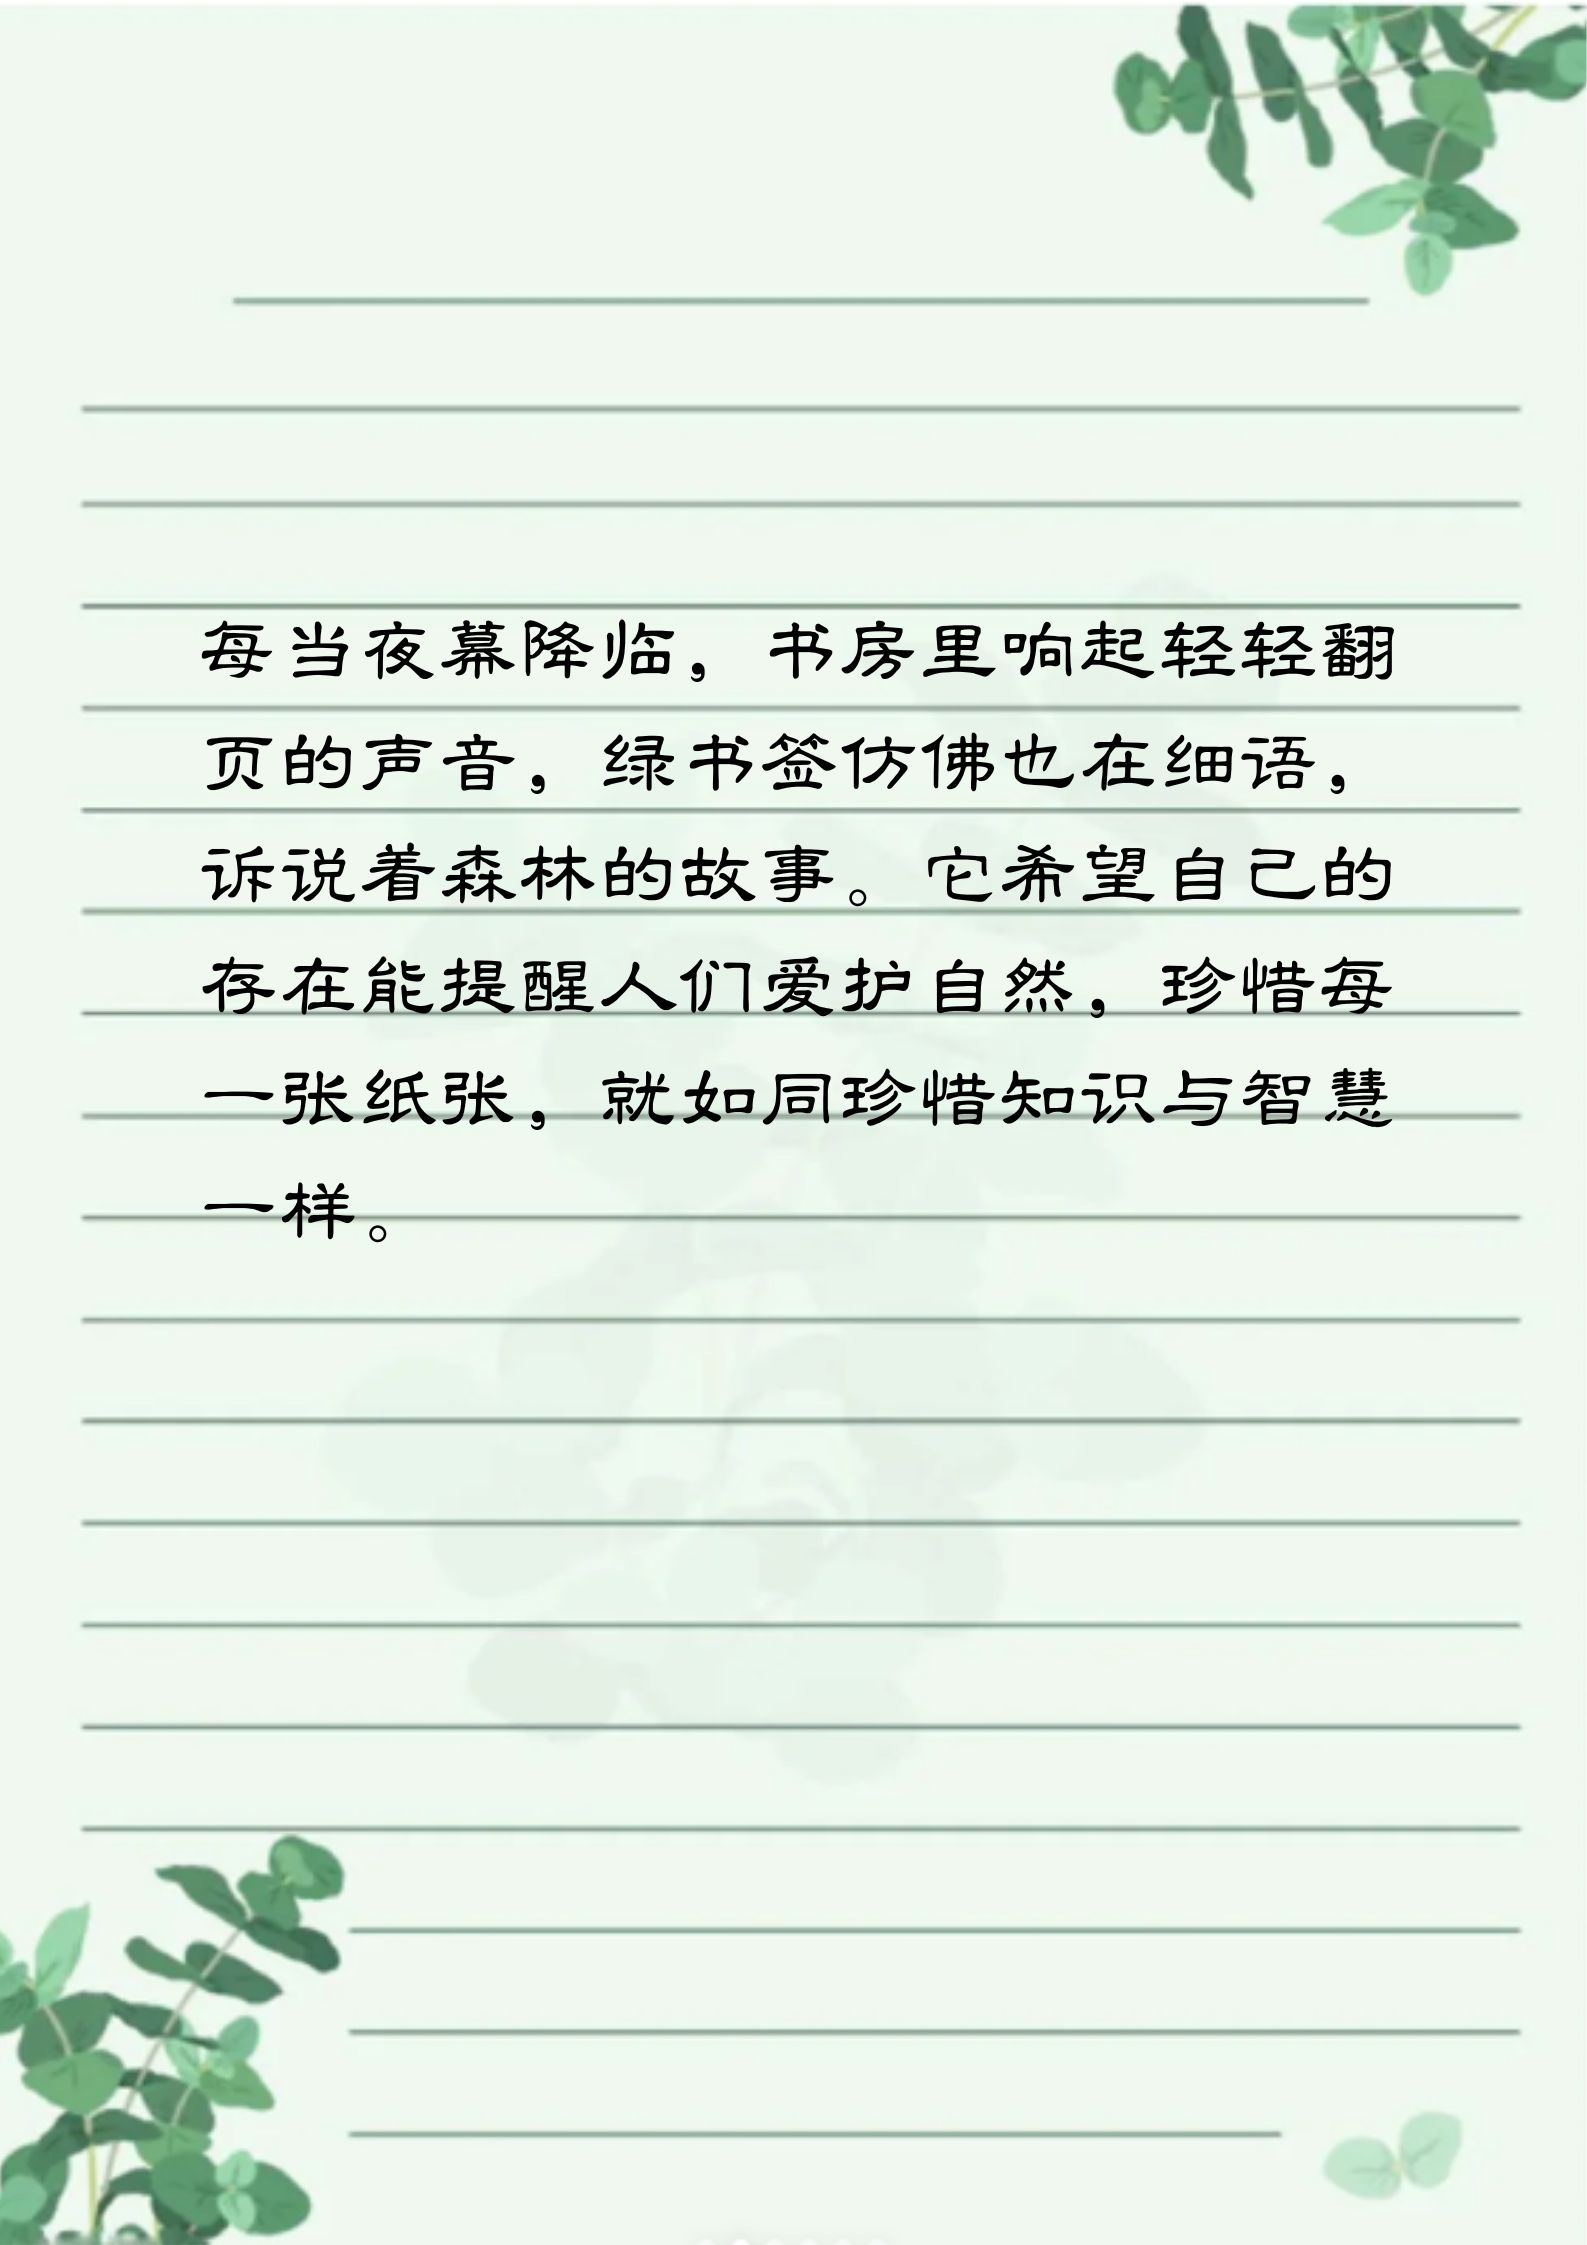 每当夜幕降临，书房里响起轻轻翻
页的声音，绿书签仿佛也在细语，
诉说着森林的故事。它希望自己的
存在能提醒人们爱护自然，珍惜每
一张纸张，就如同珍惜知识与智慧
一样。